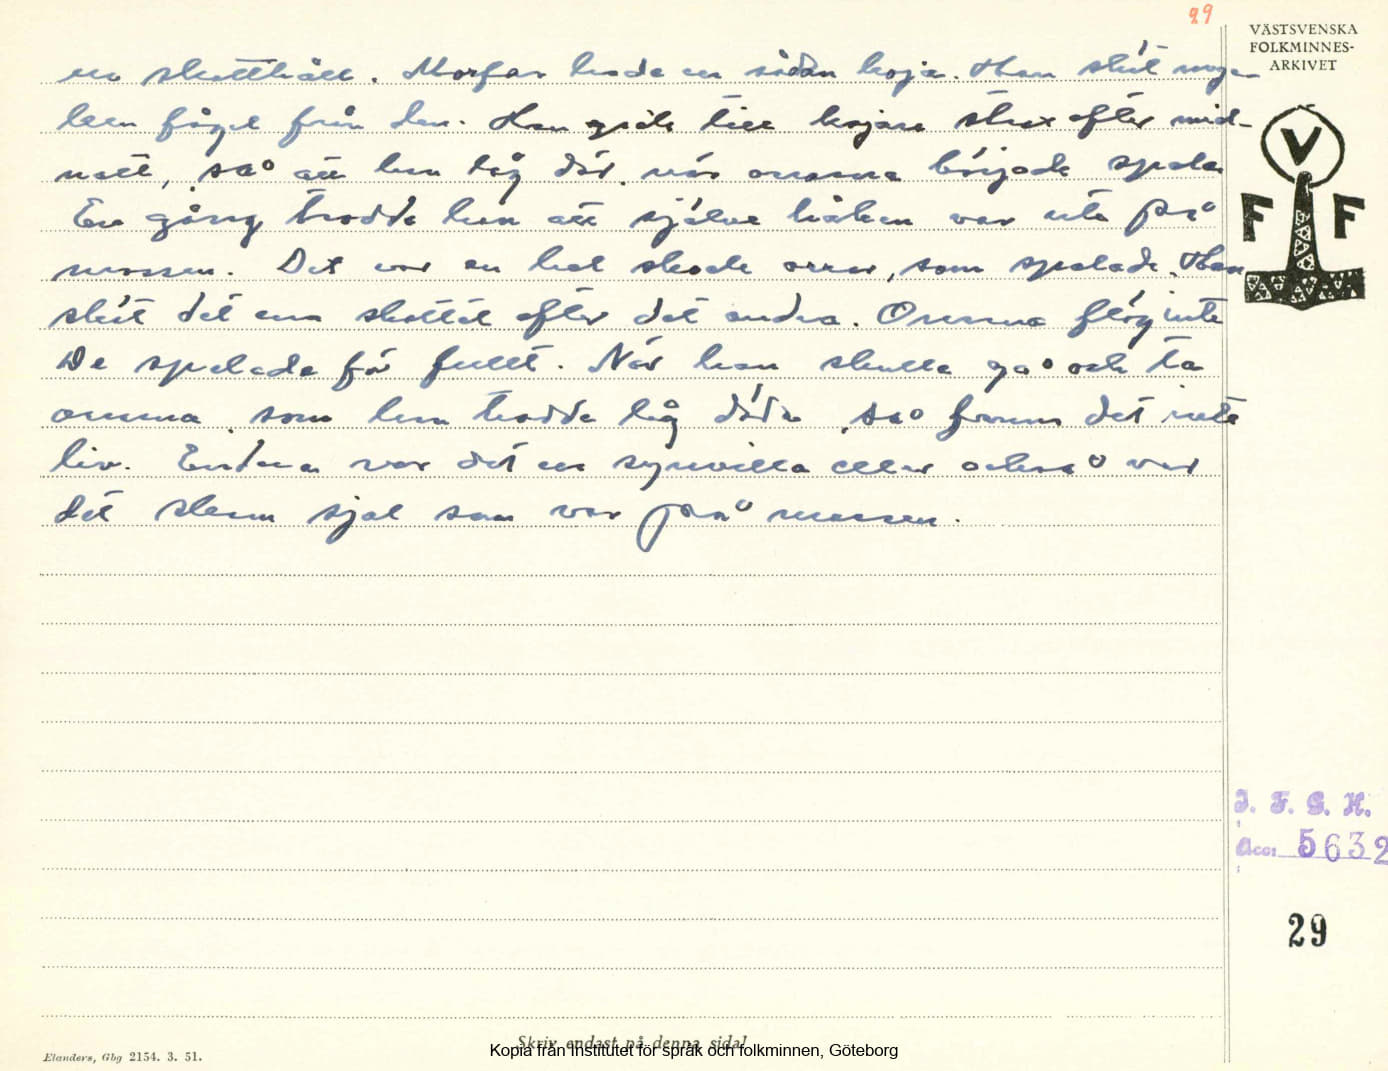 29
VÄSTSVENSKA
FOLKMINNES-
ARKIVET
en skotthåll. Morfar hade en sådan koja. Han sköt mycken
fågel från den. Han gick till kojan strax efter mid-
natt, så att han låg där, när orrarna började spela
En gång trodde han att själve håken var ute på
mossen. Det var en hel skock orrar, som spelade. Han
sköt det ena skottet efter det andra. Orrarna flög inte
De spelade för fullt. När han skulle gå och ta
orrarna, som han trodde låg döda, så fanns det inte
liv. Endera var det en synvilla eller också var
det sken själ som var på mossen.
V
F F
I. F. G. H.
Acc: 5632
29
Skriv endast på denna sida!
Elanders, Gbg 2154. 3. 51.
Kopia från Institutet för språk och folkminnen, Göteborg